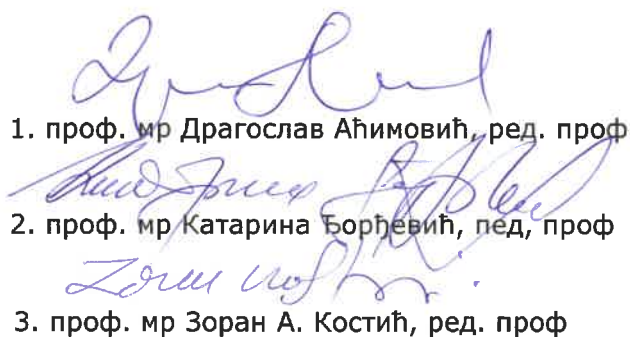 1. проф. мр Драгослав Аћимовић, ред. проф
2. проф. мр Катарина Ђорђевић, пед, проф
3. проф. мр Зоран А. Костић, ред. проф